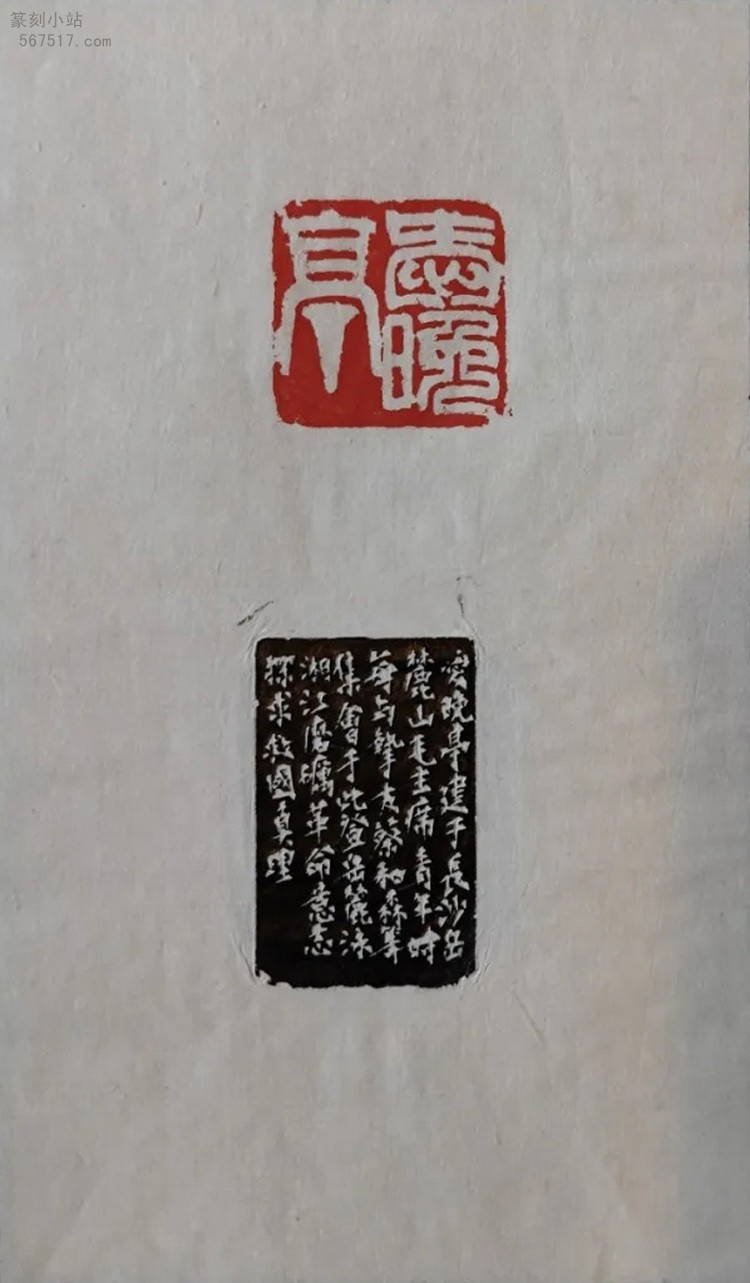 篆刻小站
567517.com
愛晚
亭
愛晚亭建于長沙岳
麓山毛主席青年時
每与摯友蔡和森等
集會于此登岳麓泳
湘江磨礪革命意志
探求救國真理